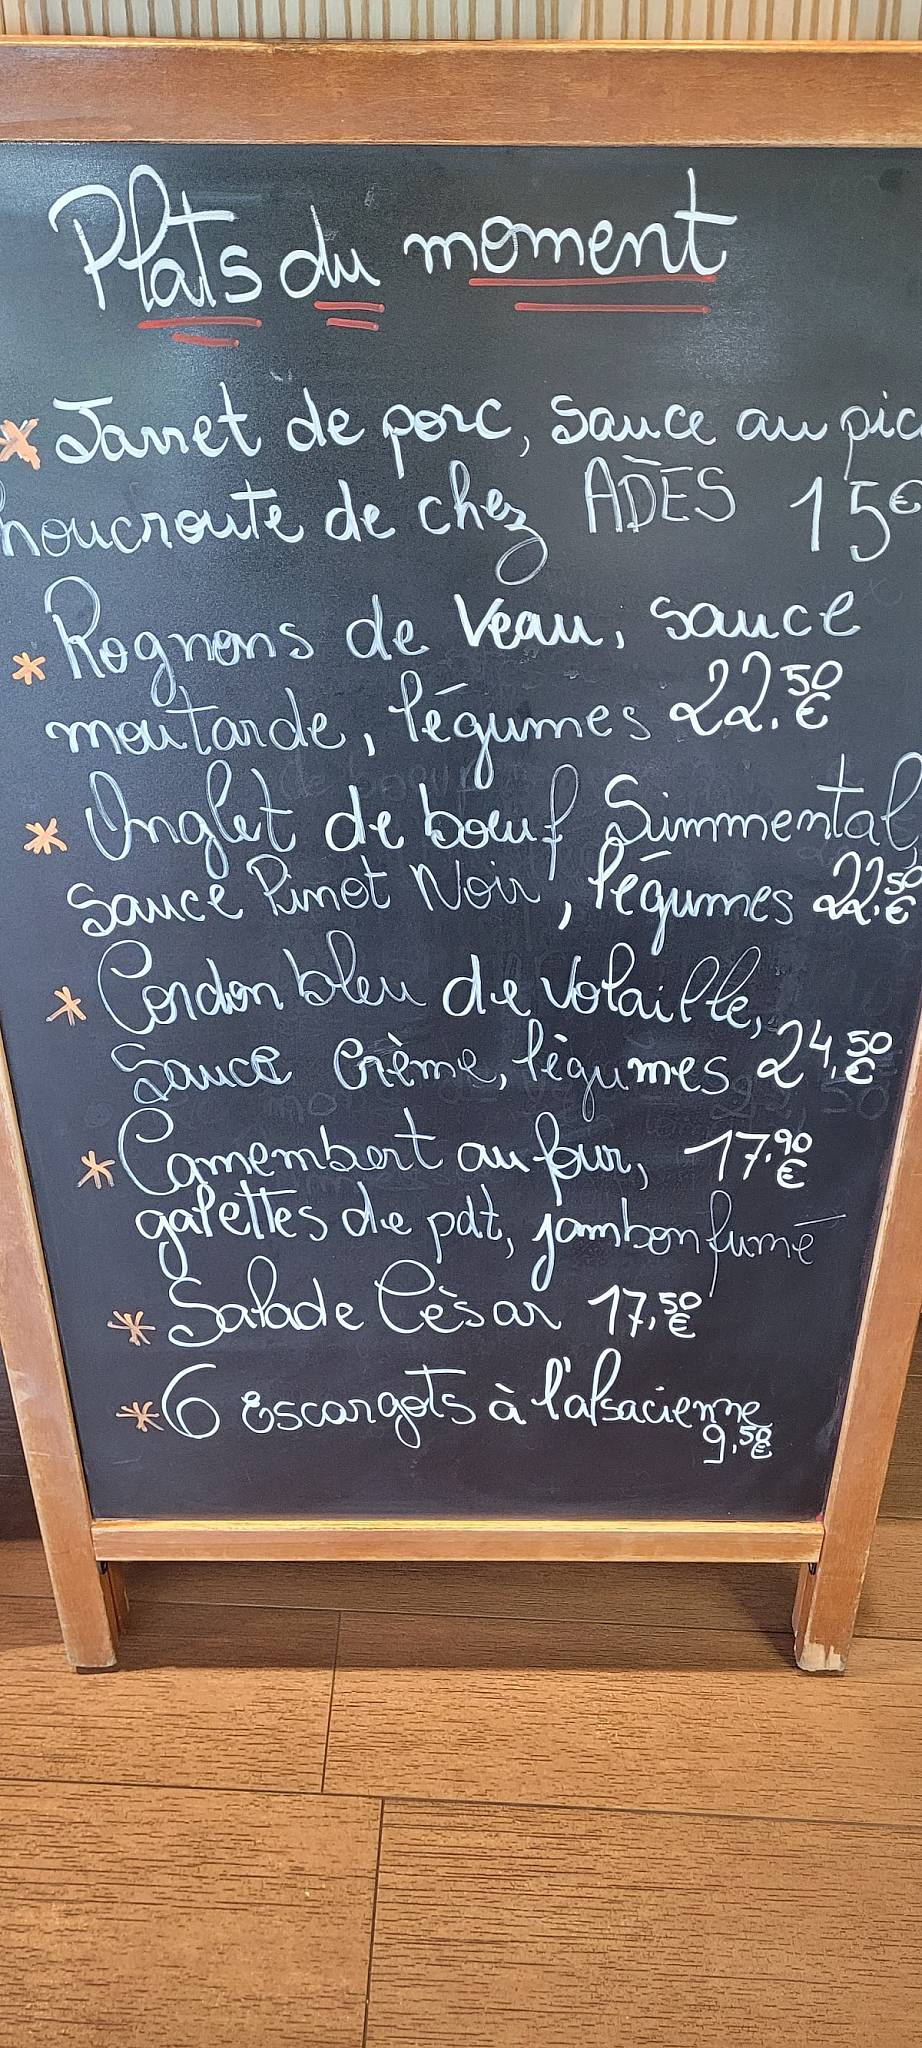 Plats du moment
* Jarret de porc, sauce au pic
houcroute de chez ADÈS 15€
* Rognons de veau, sauce
moutarde, légumes 22.50€
* Onglet de bœuf Simmental,
sauce Pinot Noir, légumes 22.50€
* Cordon bleu de volaille,
sauce crème, légumes 24.50€
* Camembert au four, 17.90€
galettes de pdt, jambon fumé
* Salade Cèsar 17.50€
* 6 Escargots à l'alsacienne
9.50€